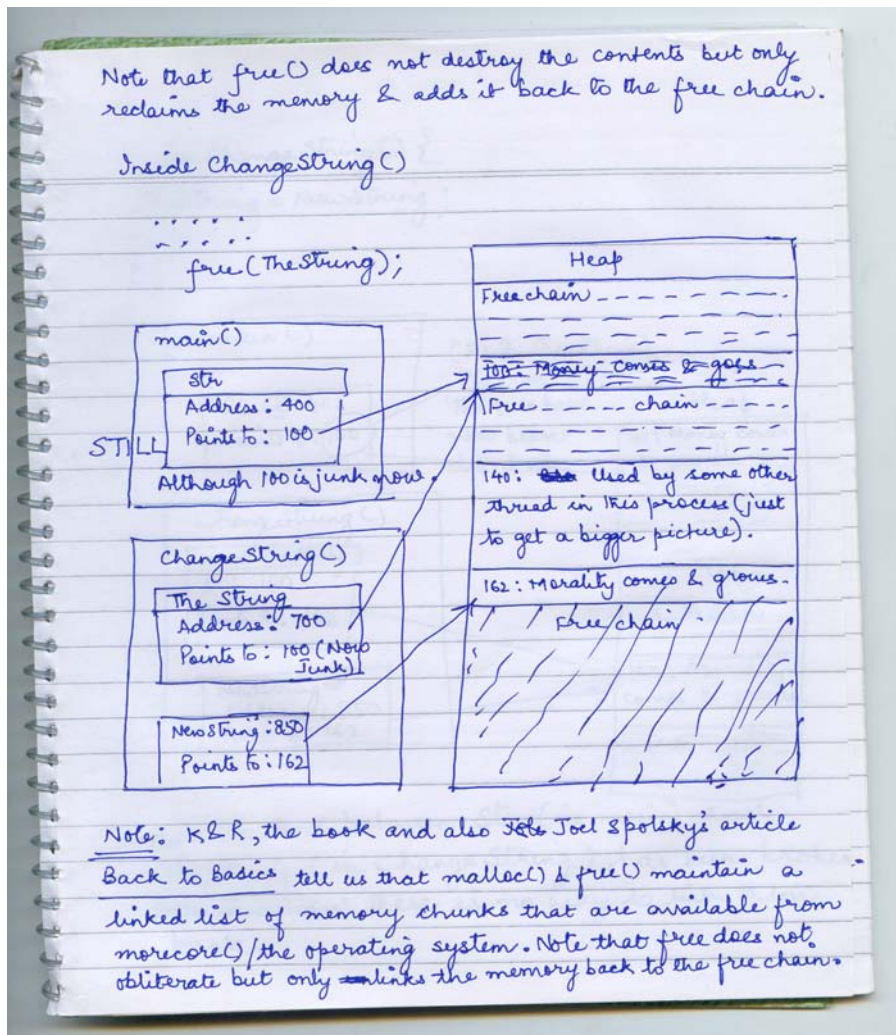 Note that free() does not destroy the contents but only
reclaims the memory & adds it back to the free chain.
Inside ChangeString()
free(TheString);
main()
Str
Address: 400
Points to: 100
STILL
Although 100 is junk now.
ChangeString()
The String
Address: 700
Points to: 100 (Now
Junk)
NewString: 850
Points to: 162
Heap
Free chain
100: Money comes & goes
Free chain
140: Used by some other
thread in this process (just
to get a bigger picture).
162: Morality comes & grows.
Free chain
Note: K&R, the book and also Joel Spolsky's article
Back to Basics tell us that malloc() & free() maintain a
linked list of memory chunks that are available from
morecore()/the operating system. Note that free does not
obliterate but only links the memory back to the free chain.